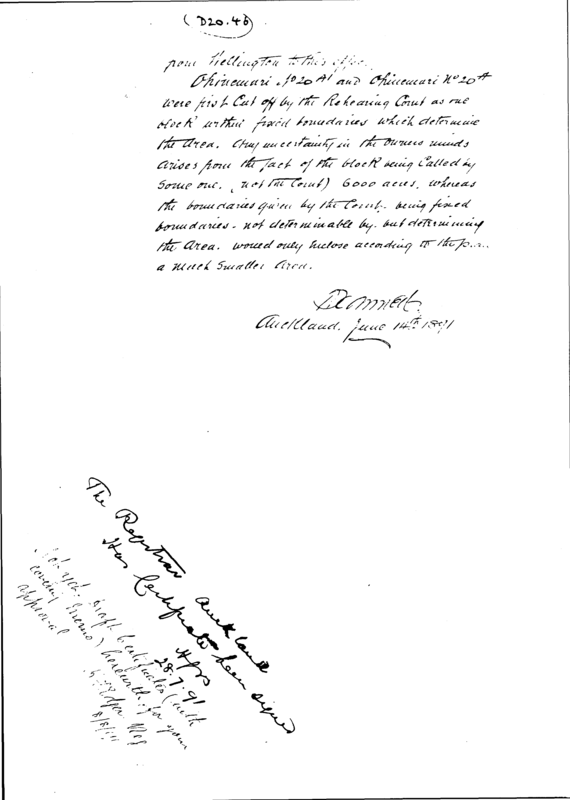 (D20.46)
from Wellington to this office.
Ohinemuri No 20A1 and Ohinemuri No 20A
were first Cut off by the Rehearing Court as one
block within fixed boundaries which determine
the area. Any uncertainty in the owners minds
arises from the fact of the block being Called by
some one, (not the Court) 6000 acres, whereas
the boundaries given by the Court. being fixed
boundaries - not determinable by. but determining
the area. would only inclose according to the
a much smaller area.
Auckland. June 14th 1891
The Registrar Auckland
Has Certificate been signed
28.7.91
Not yet. Draft Certificates (with
covering memo) herewith for your
approval
Reg